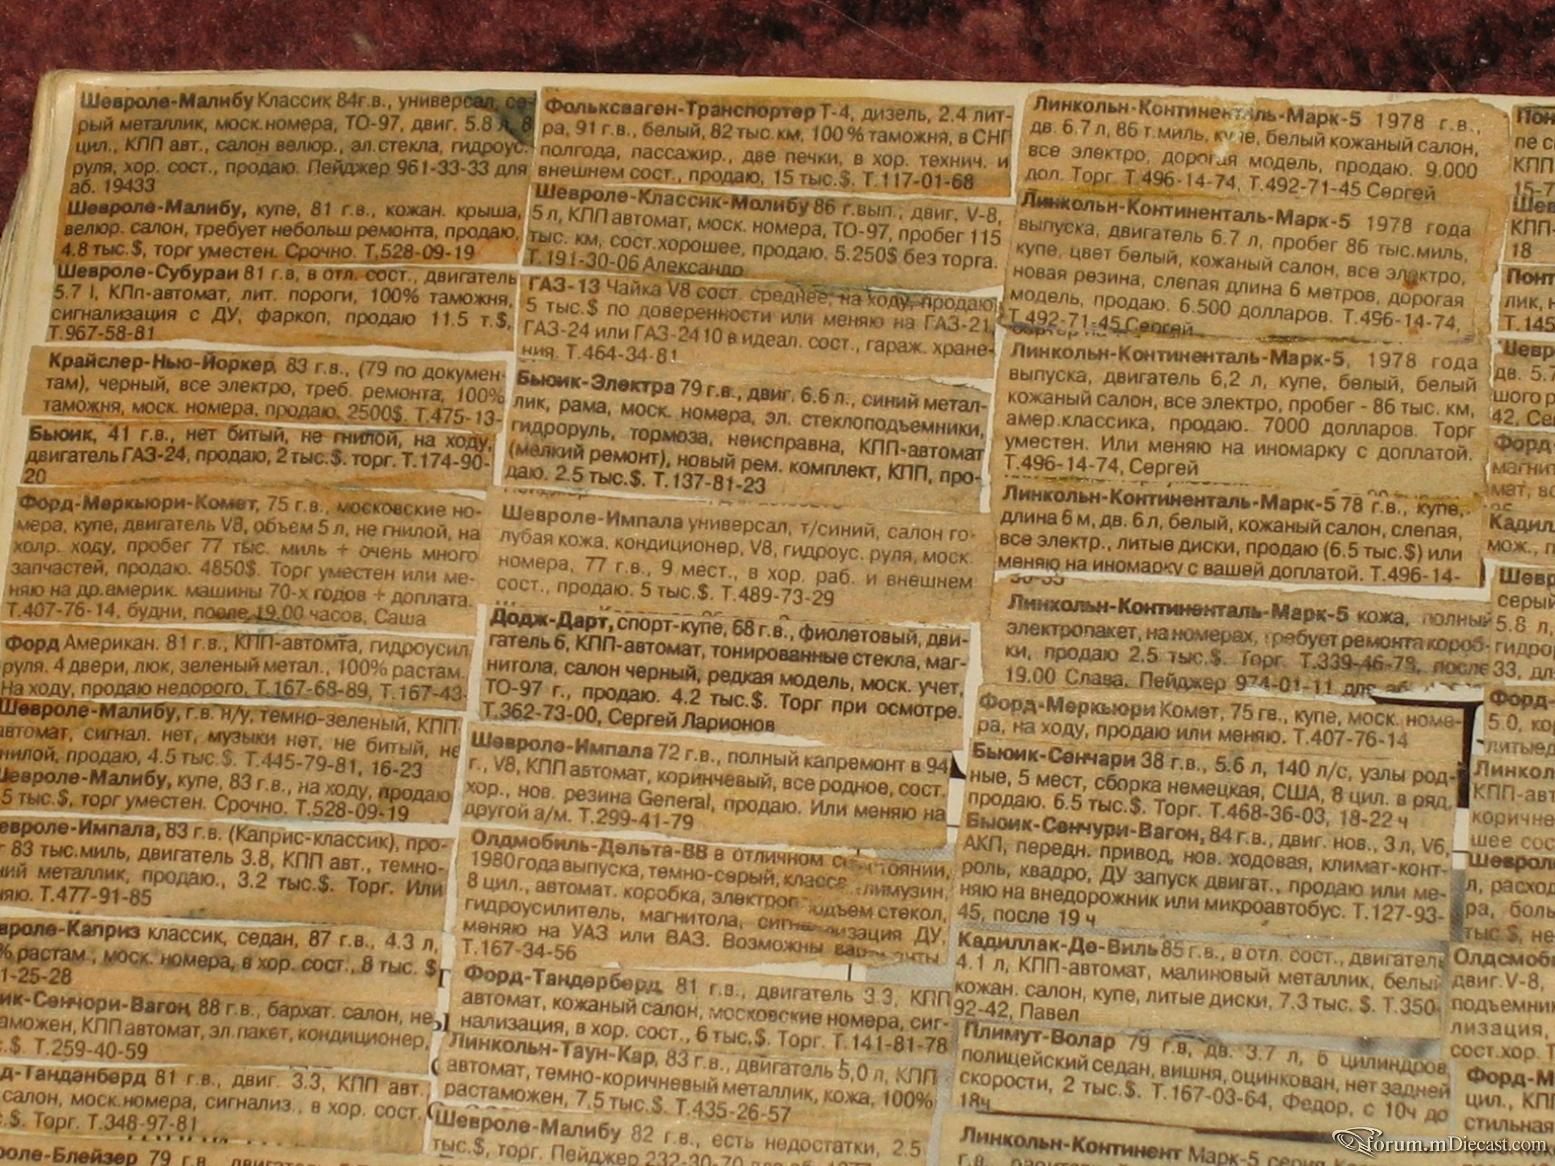 Шевроле-Малибу Классик 84г.в., универсал, се-
рый металлик, моск.номера, ТО-97, двиг. 5.8 л, 8
цил., КПП авт., салон велюр., эл.стекла, гидроус.
руля, хор. сост., продаю. Пейджер 961-33-33 для
аб. 19433
Шевроле-Малибу, купе, 81 г.в., кожан. крыша,
велюр. салон, требует небольш ремонта, продаю,
4.8 тыс.$, торг уместен. Срочно. Т,528-09-19
Шевроле-Субураи 81 г.в, в отл. сост., двигатель
5.7 l, КПп-автомат, лит. пороги, 100% таможня,
сигнализация с ДУ, фаркоп, продаю 11.5 т.$,
Т.967-58-81
Крайслер-Нью-Йоркер, 83 г.в., (79 по докумен-
там), черный, все электро, треб. ремонта, 100%
таможня, моск. номера, продаю. 2500$. Т.475-13-
Бьюик, 41 г.в., нет битый, не гнилой, на ходу,
двигатель ГАЗ-24, продаю, 2 тыс.$. торг. Т.174-90-
20
Форд-Меркьюри-Комет, 75 г.в., московские но-
мера, купе, двигатель V8, объем 5 л, не гнилой, на
холр. ходу, пробег 77 тыс. миль + очень много
запчастей, продаю. 4850$. Торг уместен или ме-
няю на др.америк. машины 70-х годов + доплата.
Т.407-76-14, будни, после 19.00 часов, Саша
Форд Американ. 81 г.в., КПП-автомта, гидроусил.
руля. 4 двери, люк, зеленый метал., 100% растам.
На ходу, продаю недорого, Т.167-68-89, Т.167-43-
Шевроле-Малибу, г.в. н/у, темно-зеленый, КПП-
автомат, сигнал. нет, музыки нет, не битый, не
гнилой, продаю, 4.5 тыс.$. Т.445-79-81, 16-23
Шевроле-Малибу, купе, 83 г.в., на ходу, продаю
5 тыс.$, торг уместен. Срочно. Т.528-09-19
евроле-Импала, 83 г.в. (Каприс-классик), про-
г 83 тыс.миль, двигатель 3.8, КПП авт., темно-
ний металлик, продаю., 3.2 тыс.$. Торг. Или
няю. Т.477-91-85
вроле-Каприз классик, седан, 87 г.в., 4.3 л,
% растам., моск. номера, в хор. сост., 8 тыс. $
1-25-28
ик-Сенчори-Вагон, 88 г.в., бархат. салон, не
аможен, КПП автомат, эл.пакет, кондиционер,
.$. Т.259-40-59
д-Танденберд 81 г.в., двиг. 3.3, КПП авт.
салон, моск.номера, сигнализ., в хор. сост.
.$. Торг. Т.348-97-81
роле-Блейзер 79 г.в.,
Фольксваген-Транспортер Т-4, дизель, 2.4 лит-
ра, 91 г.в., белый, 82 тыс.км, 100% таможня, в СНГ
полгода, пассажир., две печки, в хор. технич. и
внешнем сост., продаю, 15 тыс.$. Т.117-01-68
Шевроле-Классик-Молибу 86 г.вып., двиг. V-8,
5 л, КПП автомат, моск. номера, ТО-97, пробег 115
тыс. км, сост.хорошее, продаю. 5.250$ без торга.
Т.191-30-06 Александр
ГАЗ-13 Чайка V8 сост. среднее, на ходу, продаю
5 тыс.$ по доверенности или меняю на ГАЗ-21,
ГАЗ-24 или ГАЗ-2410 в идеал. сост., гараж. хране-
ния. Т.464-34-81
Бьюик-Электра 79 г.в., двиг. 6.6 л., синий метал-
лик, рама, моск. номера, эл. стеклоподъемники,
гидроруль, тормоза, неисправна, КПП-автомат
(мелкий ремонт), новый рем. комплект, КПП, про-
даю. 2.5 тыс.$. Т.137-81-23
Шевроле-Импала универсал, т/синий, салон го-
лубая кожа, кондиционер, V8, гидроус. руля, моск.
номера, 77 г.в., 9 мест., в хор. раб. и внешнем
сост., продаю. 5 тыс.$. Т.489-73-29
Додж-Дарт, спорт-купе, 68 г.в., фиолетовый, дви-
гатель 6, КПП-автомат, тонированные стекла, маг-
нитола, салон черный, редкая модель, моск. учет,
ТО-97 г., продаю. 4.2 тыс.$. Торг при осмотре.
Т.362-73-00, Сергей Ларионов
Шевроле-Импала 72 г.в., полный капремонт в 94
г., V8, КПП автомат, коричневый, все родное, сост.
хор., нов. резина General, продаю. Или меняю на
другой а/м. Т.299-41-79
Олдмобиль-Дельта-88 в отличном состоянии,
1980 года выпуска, темно-серый, класса лимузин,
8 цил., автомат. коробка, электроподъем стекол,
гидроусилитель, магнитола, сигнализация ДУ,
меняю на УАЗ или ВАЗ. Возможны варианты
Т.167-34-56
Форд-Тандерберд, 81 г.в., двигатель 3.3, КПП
автомат, кожаный салон, московские номера, сиг-
нализация, в хор. сост., 6 тыс.$. Торг. Т.141-81-78
Линкольн-Таун-Кар, 83 г.в., двигатель 5,0 л, КПП
автомат, темно-коричневый металлик, кожа, 100%
растаможен, 7,5 тыс.$. Т.435-26-57
Шевроле-Малибу 82 г.в., есть недостатки, 2.5
тыс.$, торг. Пейджер 232-30-70 для аб.
Линкольн-Континенталь-Марк-5 1978 г.в.,
дв. 6.7 л, 86 т.миль, купе, белый кожаный салон,
все электро, дорогая модель, продаю. 9.000
дол. Торг Т.496-14-74, Т.492-71-45 Сергей
Линкольн-Континенталь-Марк-5 1978 года
выпуска, двигатель 6.7 л, пробег 86 тыс.миль,
купе, цвет белый, кожаный салон, все электро,
новая резина, слепая длина 6 метров, дорогая
модель, продаю. 6.500 долларов. Т.496-14-74,
Т.492-71-45 Сергей
Линкольн-Континенталь-Марк-5, 1978 года
выпуска, двигатель 6,2 л, купе, белый, белый
кожаный салон, все электро, пробег - 86 тыс. км,
амер.классика, продаю. 7000 долларов. Торг
уместен. Или меняю на иномарку с доплатой.
Т.496-14-74, Сергей
Линкольн-Континенталь-Марк-5 78 г.в., купе,
длина 6 м, дв. 6 л, белый, кожаный салон, слепая,
все электр., литые диски, продаю (6.5 тыс.$) или
меняю на иномарку с вашей доплатой. Т.496-14-
Линхольн-Континенталь-Марк-5 кожа, полный
электропакет, на номерах, требует ремонта короб-
ки, продаю 2.5 тыс.$. Торг. Т.339-46-78, после
19.00 Слава. Пейджер 974-01-11 для аб.
Форд-Меркьюри Комет, 75 гв., купе, моск. номе-
ра, на ходу, продаю или меняю. Т.407-76-14
Бьюик-Сенчари 38 г.в., 5.6 л, 140 л/с, узлы род-
ные, 5 мест, сборка немецкая, США, 8 цил. в ряд,
продаю. 6.5 тыс.$. Торг. Т.468-36-03, 18-22 ч
Бьюик-Сенчури-Вагон, 84 г.в., двиг. нов., 3 л, V6,
АХП, передн. привод, нов. ходовая, климат-конт-
роль, квадро, ДУ запуск двигат., продаю или ме-
няю на внедорожник или микроавтобус. Т.127-93-
45, после 19 ч
Кадиллак-Де-Виль 85 г.в., в отл. сост., двигатель
4.1 л, КПП-автомат, малиновый металлик, белый
кожан. салон, купе, литые диски, 7.3 тыс. $. Т.350-
92-42, Павел
Плимут-Волар 79 г.в, дв. 3.7 л, 6 цилиндров,
полицейский седан, вишня, оцинкован, нет задней
скорости, 2 тыс.$. Т.167-03-64, Федор, с 10ч до
18ч
Линкольн-Континент Марк-5
Пон
пе с
КПП
15-7
Шев
КПП-
18
Понт
лик, н
Т.145
Шевр
дв. 5.7
шого р
42, Се
Форд-
магнит
мат, во
Кадил
мож., п
Шевр
серый
5.8 л,
гидро
33, дл
Форд-
5.0, ко
литые д
Линкол
КПП-авт
коричне
шее сос
Шеврол
л, расход
ра, боль
тыс.$, не
Олдсмоби
двиг.V-8,
подъемни
лизация,
сост.хор. Т
Форд-М
цил., КПП
стильная
forum.mDiecast.com